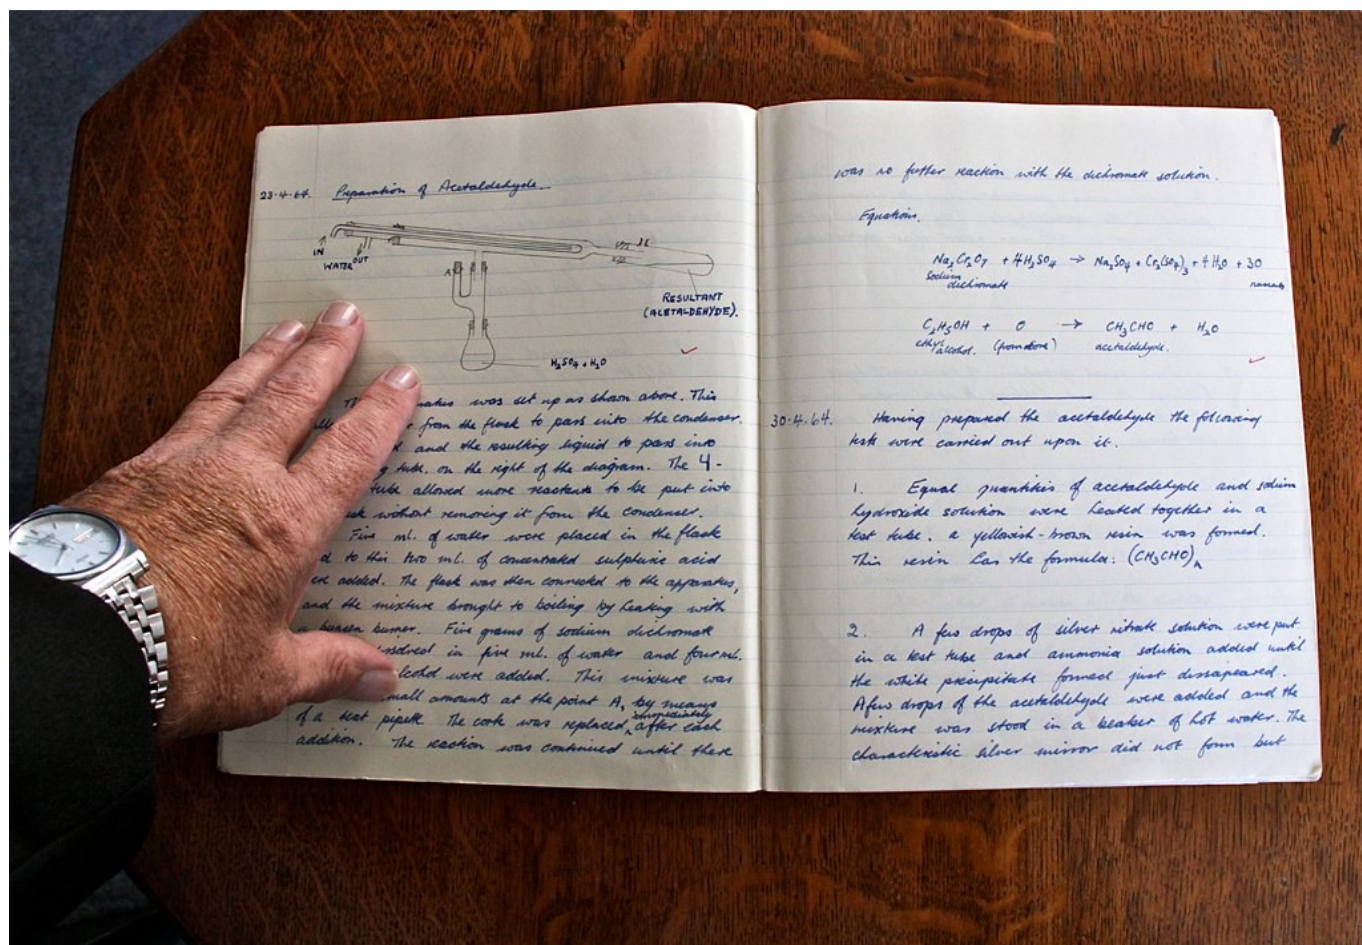 23·4·64. Preparation of Acetaldehyde.
IN
WATER
OUT
A
RESULTANT
(ACETALDEHYDE).
H₂SO₄ + H₂O
was set up as shown above. This
from the flask to pass into the condenser
and the resulting liquid to pass into
tube. on the right of the diagram. The 4-
tube allowed more reactants to be put into
without removing it from the condenser.
Five ml. of water were placed in the flask
to this two ml. of concentrated sulphuric acid
added. The flask was then connected to the apparatus,
and the mixture brought to boiling by heating with
a bunsen burner. Five grams of sodium dichromate
in five ml. of water and four ml.
were added. This mixture was
small amounts at the point A, by means
of a teat pipette. The cork was replaced, immediately after each
addition. The reaction was continued until there
was no further reaction with the dichromate solution.
Equations.
Na₂Cr₂O₇ + 4H₂SO₄ → Na₂SO₄ + Cr₂(SO₄)₃ + 4H₂O + 3O
sodium
dichromate
nascent
C₂H₅OH + O → CH₃CHO + H₂O
ethyl alcohol. (from above) acetaldehyde.
30·4·64. Having prepared the acetaldehyde the following
tests were carried out upon it.
1. Equal quantities of acetaldehyde and sodium
hydroxide solution were heated together in a
test tube. a yellowish-brown resin was formed.
This resin has the formula: (CH₃CHO)ₙ
2. A few drops of silver nitrate solution were put
in a test tube and ammonia solution added until
the white precipitate formed just dissapeared.
A few drops of the acetaldehyde were added and the
mixture was stood in a beaker of hot water. The
characteristic silver mirror did not form but